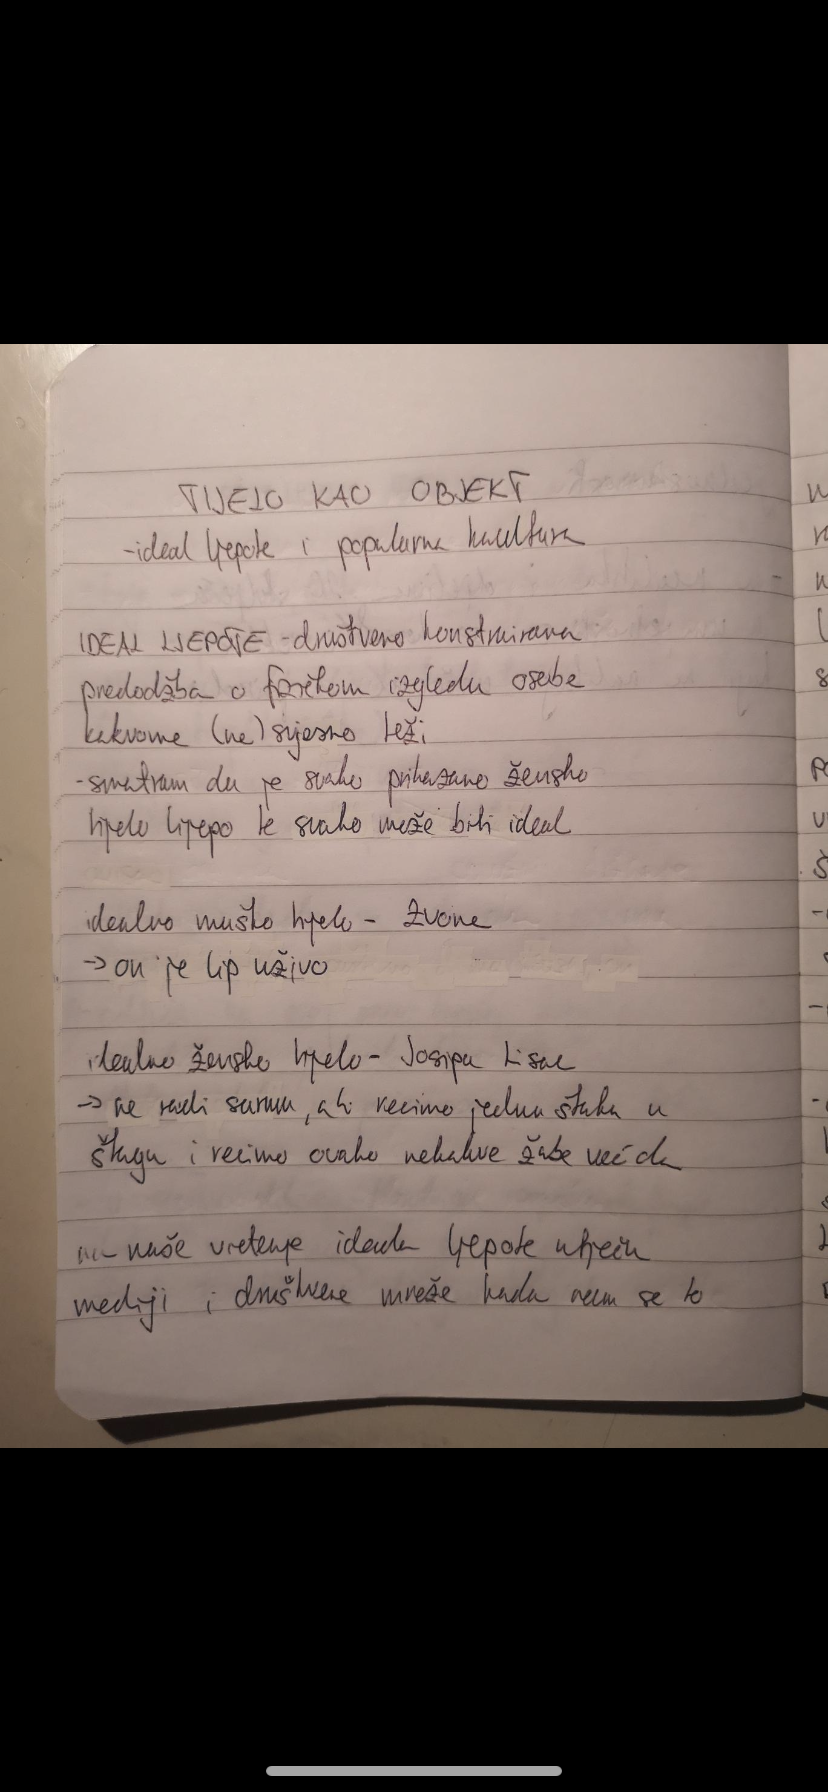 TIJELO KAO OBJEKT
-ideal ljepote i popularna kultura
IDEAL LJEPOTE - društveno konstruirana
predodžba o fizičkom izgledu osobe
kakvome (ne)svjesno teži
-smatram da je svako prikazano žensko
tijelo lijepo te svako može biti ideal
idealno muško tijelo - Zvone
→ on je lip uživo
idealno žensko tijelo - Josipa Lisac
→ ne radi sarmu, ali recimo jednu štaku u
štagu i recimo ovako nekakve žabe već da
na naše viđenje ideala ljepote utječu
mediji i društvene mreže kada nam se to